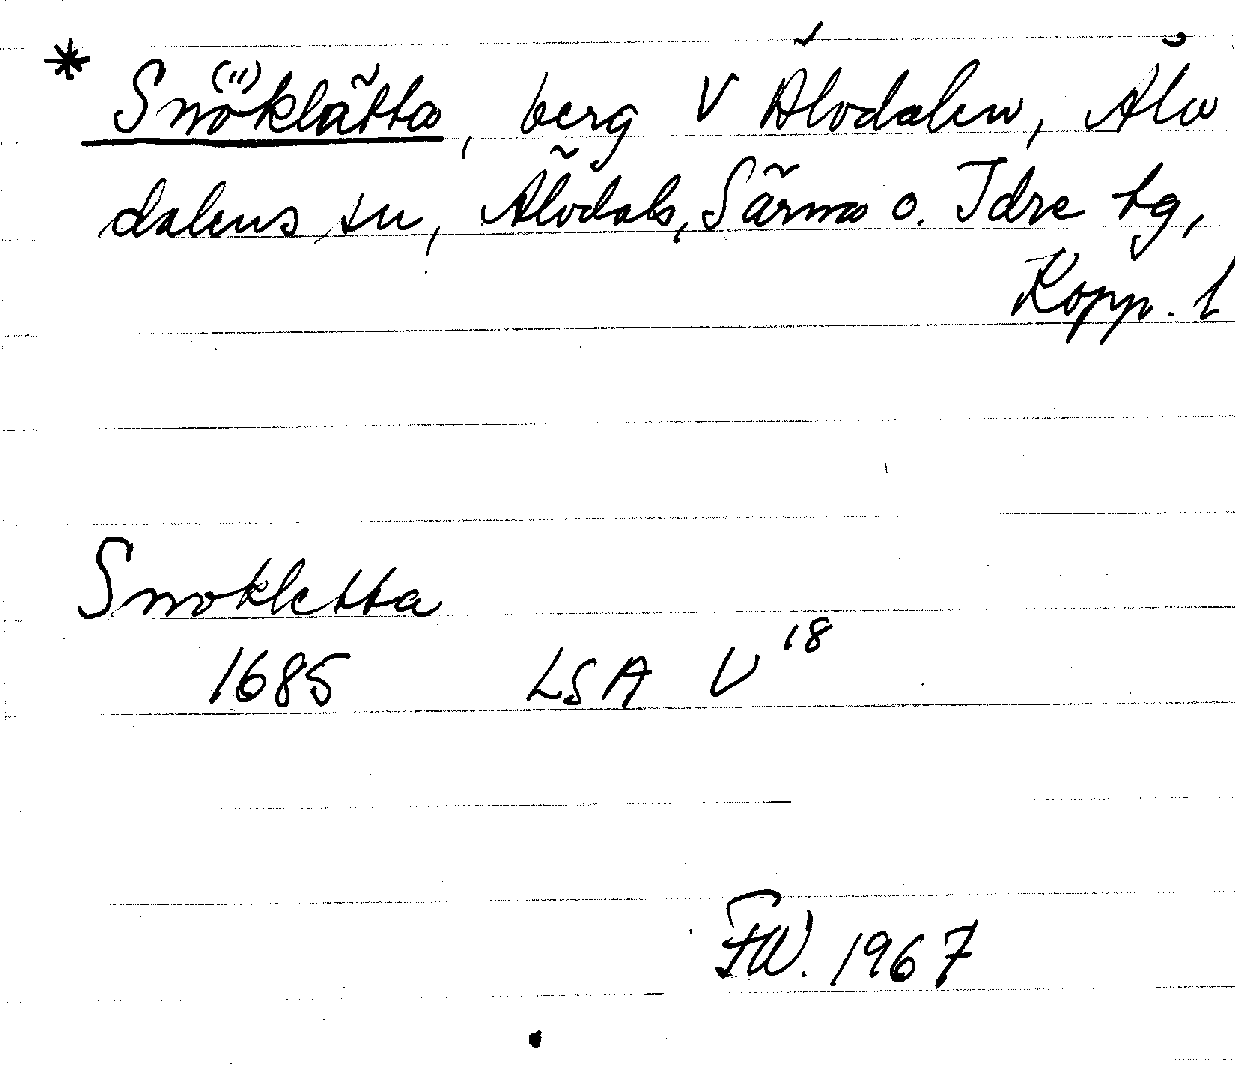 * Snö(")klätta, berg V Älvdalen, Älv
dalens sn, Älvdals, Särna o. Idre tg,
Kopp. l
Snokletta
1685 LSA U 18
FW. 1967